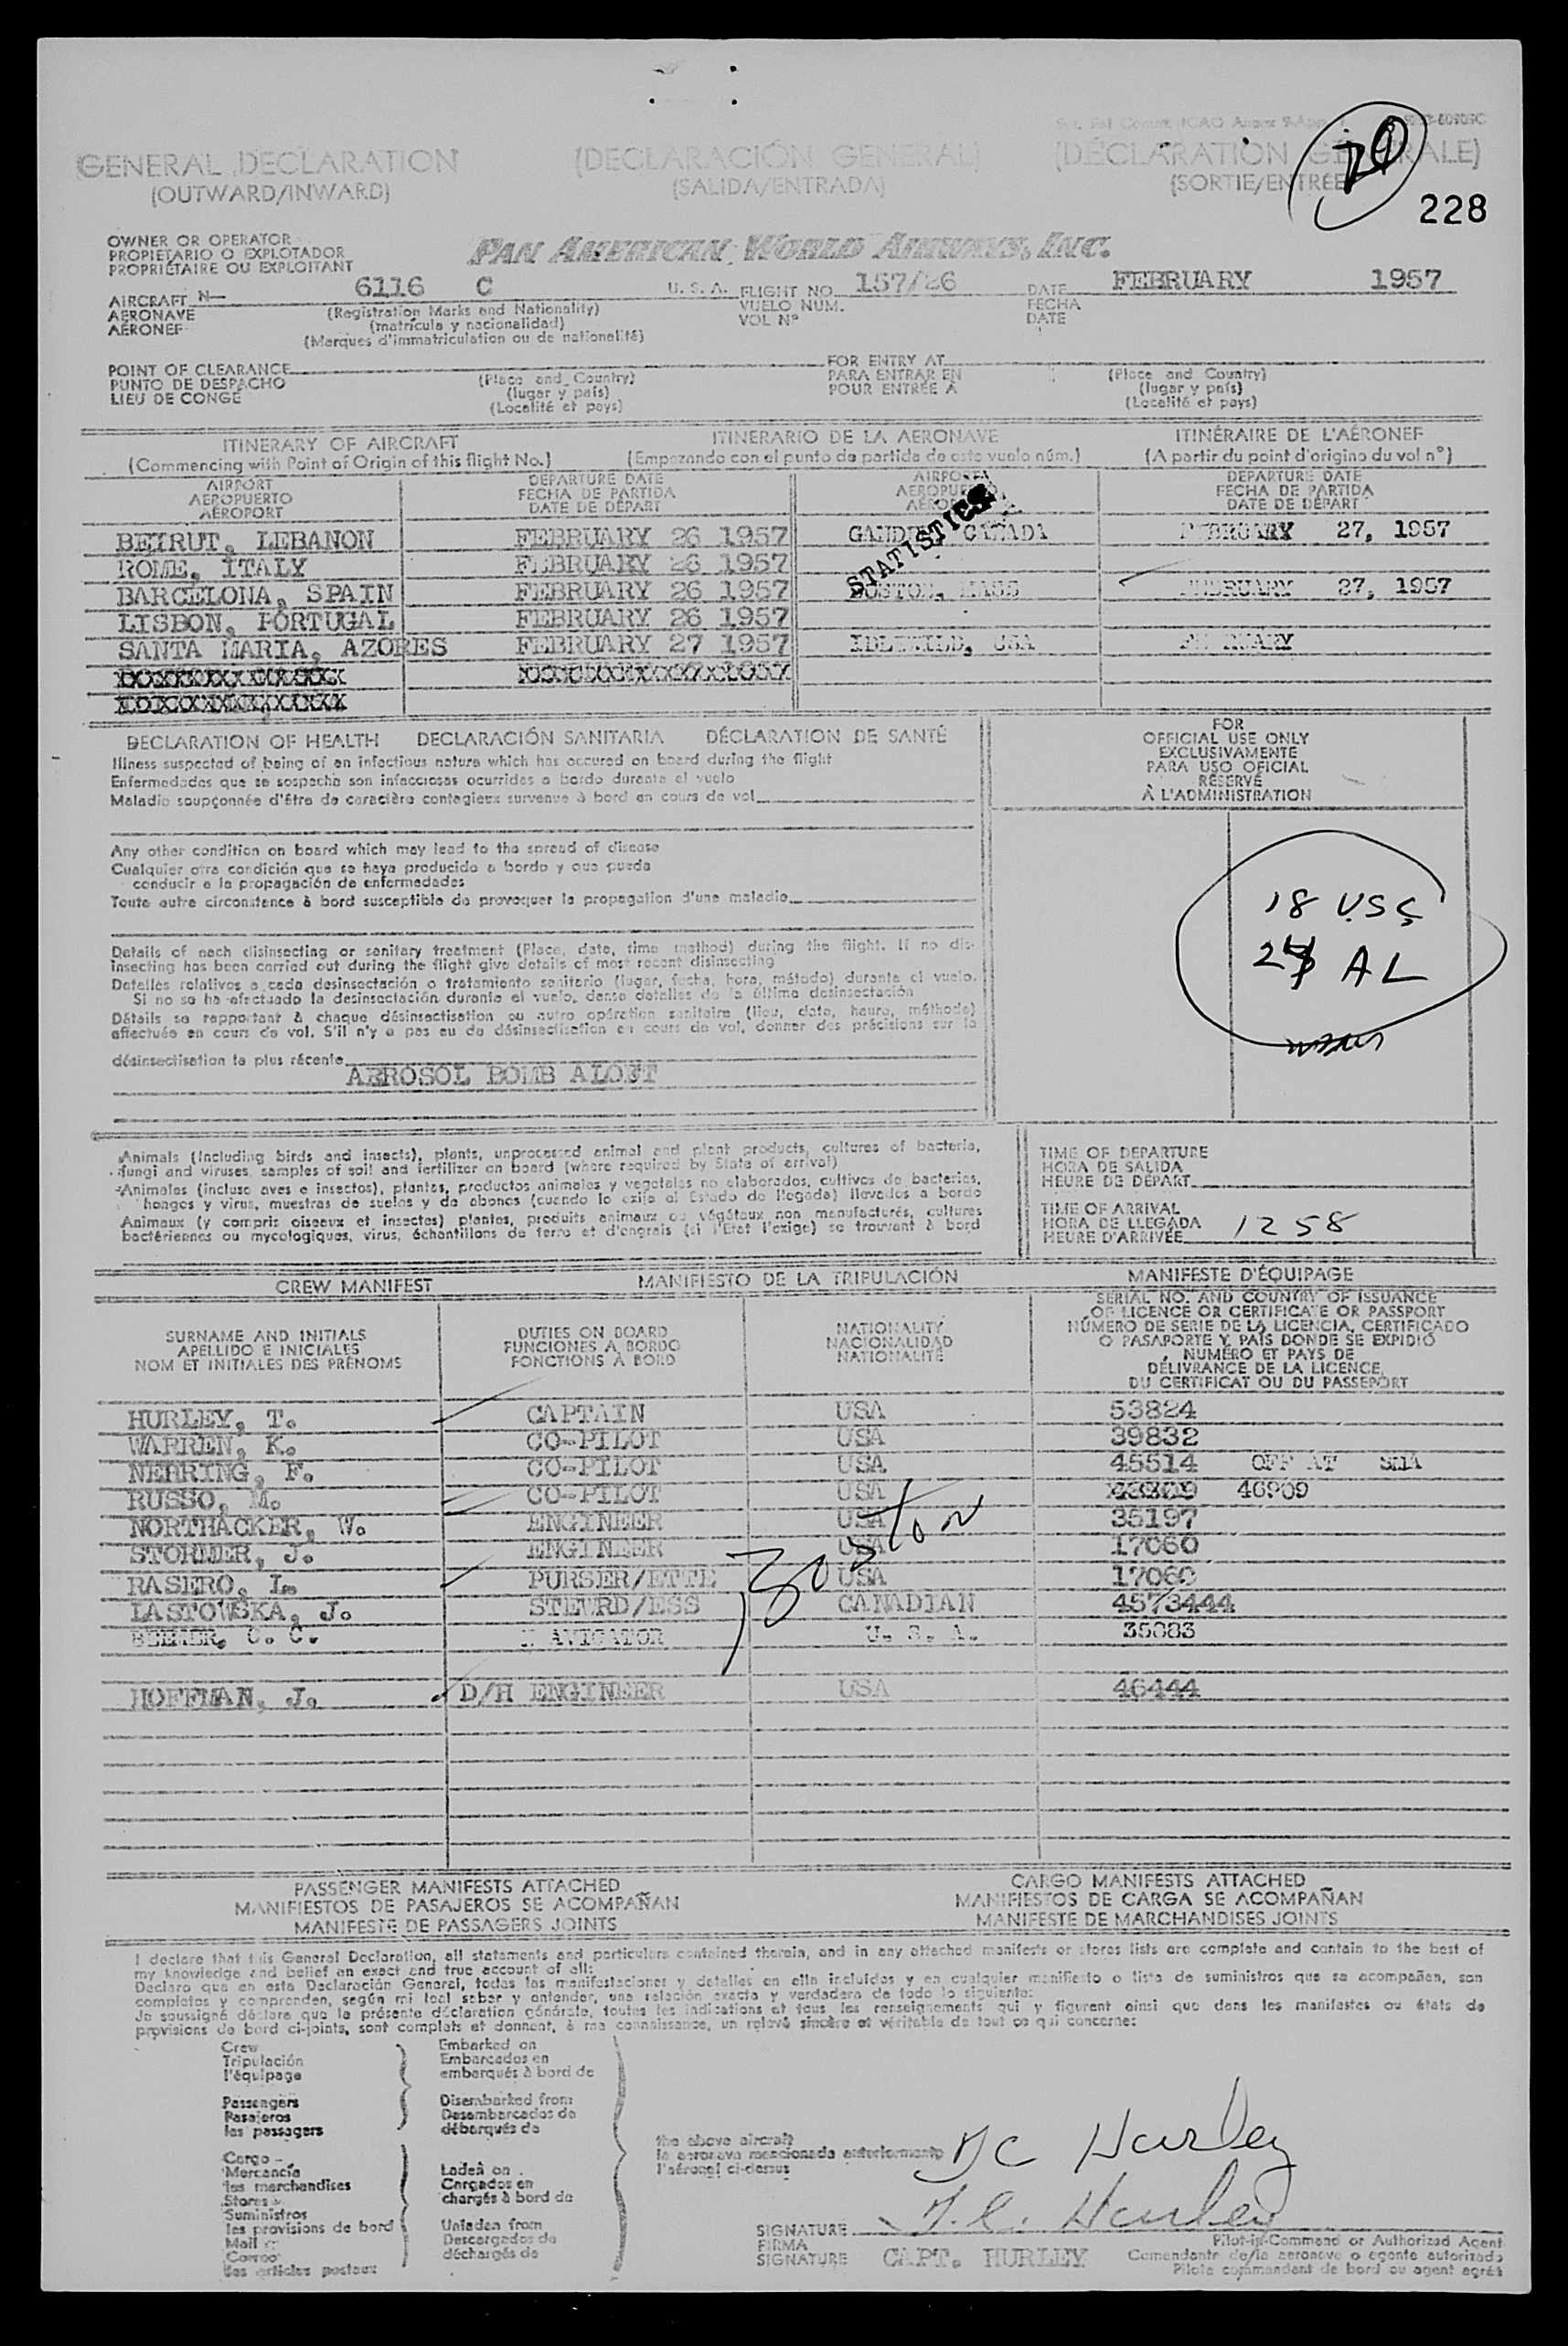 GENERAL DECLARATION
(OUTWARD/INWARD)
(DECLARACIÓN GENERAL)
(SALIDA/ENTRADA)
(DÉCLARATION GÉNÉRALE)
(SORTIE/ENTRÉE)
228
OWNER OR OPERATOR
PROPIETARIO O EXPLOTADOR
PROPRIÉTAIRE OU EXPLOITANT
PAN AMERICAN WORLD AIRWAYS, INC.
AIRCRAFT N 6116 C U. S. A. FLIGHT NO. 157/26 DATE FEBRUARY 1957
AERONAVE (Registration Marks and Nationality) VUELO NUM. FECHA
AÉRONEF (matrícula y nacionalidad) VOL Nº DATE
(Marques d'immatriculation ou de nationalité)
POINT OF CLEARANCE FOR ENTRY AT
PUNTO DE DESPACHO (Place and Country) PARA ENTRAR EN (Place and Country)
LIEU DE CONGÉ (lugar y país) POUR ENTRÉE À (lugar y país)
(Localité et pays) (Localité et pays)
ITINERARY OF AIRCRAFT ITINERARIO DE LA AERONAVE ITINÉRAIRE DE L'AÉRONEF
(Commencing with Point of Origin of this flight No.) (Empezando con el punto de partida de este vuelo núm.) (A partir du point d'origine du vol nº)
AIRPORT DEPARTURE DATE AIRPORT DEPARTURE DATE
AEROPUERTO FECHA DE PARTIDA AEROPUERTO FECHA DE PARTIDA
AÉROPORT DATE DE DÉPART AÉROPORT DATE DE DÉPART
STATISTICS
BEIRUT, LEBANON FEBRUARY 26 1957 GANDER, CANADA FEBRUARY 27, 1957
ROME, ITALY FEBRUARY 26 1957
BARCELONA, SPAIN FEBRUARY 26 1957 BOSTON, MASS FEBRUARY 27, 1957
LISBON, PORTUGAL FEBRUARY 26 1957
SANTA MARIA, AZORES FEBRUARY 27 1957 IDLEWILD, USA FEBRUARY
DECLARATION OF HEALTH DECLARACIÓN SANITARIA DÉCLARATION DE SANTÉ
Illness suspected of being of an infectious nature which has occured on board during the flight
Enfermedades que se sospecha son infecciosas ocurridas a bordo durante el vuelo
Maladie soupçonnée d'être de caractère contagieux survenue à bord en cours de vol
Any other condition on board which may lead to the spread of disease
Cualquier otra condición que se haya producido a bordo y que pueda
conducir a la propagación de enfermedades
Toute autre circonstance à bord susceptible de provoquer la propagation d'une maladie
Details of each disinsecting or sanitary treatment (Place, date, time method) during the flight. If no dis-
insecting has been carried out during the flight give details of most recent disinsecting
Detalles relativos a cada desinsectación o tratamiento sanitario (lugar, fecha, hora, método) durante el vuelo.
Si no se ha efectuado la desinsectación durante el vuelo, dense detalles de la última desinsectación
Détails se rapportant à chaque désinsectisation ou autre opération sanitaire (lieu, date, heure, méthode)
effectuée en cours de vol. S'il n'y a pas eu de désinsectisation en cours de vol, donner des précisions sur la
désinsectisation la plus récente
AEROSOL BOMB ALOFT
FOR
OFFICIAL USE ONLY
EXCLUSIVAMENTE
PARA USO OFICIAL
RÉSERVÉ
À L'ADMINISTRATION
18 USC
AL
Animals (including birds and insects), plants, unprocessed animal and plant products, cultures of bacteria,
fungi and viruses, samples of soil and fertilizer on board (where required by State of arrival)
Animales (incluso aves e insectos), plantas, productos animales y vegetales no elaborados, cultivos de bacterias,
hongos y virus, muestras de suelos y de abonos (cuando lo exija el Estado de llegada) llevados a bordo
Animaux (y compris oiseaux et insectes) plantes, produits animaux ou végétaux non manufacturés, cultures
bactériennes ou mycologiques, virus, échantillons de terre et d'engrais (si l'État l'exige) se trouvant à bord
TIME OF DEPARTURE
HORA DE SALIDA
HEURE DE DÉPART
TIME OF ARRIVAL
HORA DE LLEGADA
HEURE D'ARRIVÉE 1258
CREW MANIFEST MANIFIESTO DE LA TRIPULACIÓN MANIFESTE D'ÉQUIPAGE
SURNAME AND INITIALS
APELLIDO E INICIALES
NOM ET INITIALES DES PRÉNOMS
DUTIES ON BOARD
FUNCIONES A BORDO
FONCTIONS À BORD
NATIONALITY
NACIONALIDAD
NATIONALITÉ
SERIAL NO. AND COUNTRY OF ISSUANCE
OF LICENCE OR CERTIFICATE OR PASSPORT
NÚMERO DE SERIE DE LA LICENCIA, CERTIFICADO
O PASAPORTE Y PAÍS DONDE SE EXPIDIÓ
NUMÉRO ET PAYS DE
DÉLIVRANCE DE LA LICENCE,
DU CERTIFICAT OU DU PASSEPORT
HURLEY, T. CAPTAIN USA 53824
WARREN, K. CO-PILOT USA 39832
NEHRING, F. CO-PILOT USA 45514 OFF AT SMA
RUSSO, M. CO-PILOT USA 46909
NORTHACKER, W. ENGINEER USA 35197
STORMER, J. ENGINEER USA 17060
RASERO, L. PURSER/ETTE USA 17060
LASTOWSKA, J. STEWRD/ESS CANADIAN 4573444
BEEMER, C. C. NAVIGATOR U. S. A. 35083
Boston
HOFFMAN, J. D/H ENGINEER USA 46444
PASSENGER MANIFESTS ATTACHED CARGO MANIFESTS ATTACHED
MANIFIESTOS DE PASAJEROS SE ACOMPAÑAN MANIFIESTOS DE CARGA SE ACOMPAÑAN
MANIFESTE DE PASSAGERS JOINTS MANIFESTE DE MARCHANDISES JOINTS
I declare that this General Declaration, all statements and particulars contained therein, and in any attached manifests or stores lists are complete and contain to the best of
my knowledge and belief an exact and true account of all:
Declaro que en esta Declaración General, todas las manifestaciones y detalles en ella incluidos y en cualquier manifiesto o lista de suministros que se acompañen, son
completos y comprenden, según mi leal saber y entender, una relación exacta y verdadera de todo lo siguiente:
Je soussigné déclare que la présente déclaration générale, toutes les indications et tous les renseignements qui y figurent ainsi que dans les manifestes ou états de
provisions de bord ci-joints, sont complets et donnent, à ma connaissance, un relevé sincère et véritable de tout ce qui concerne:
Crew
Tripulación
l'équipage
Passengers
Pasajeros
les passagers
Cargo
Mercancía
les marchandises
Stores
Suministros
les provisions de bord
Mail
Correo
les articles postaux
Embarked on
Embarcados en
embarqués à bord de
Disembarked from
Desembarcados de
débarqués de
Laden on
Cargados en
chargés à bord de
Unladen from
Descargados de
déchargés de
the above aircraft
la aeronave mencionada anteriormente
l'aéronef ci-dessus
T C Hurley
T. C. Hurley
SIGNATURE
FIRMA
SIGNATURE
CAPT. HURLEY
Pilot-in-Command or Authorized Agent
Comandante de la aeronave o agente autorizado
Pilote commandant de bord ou agent agréé